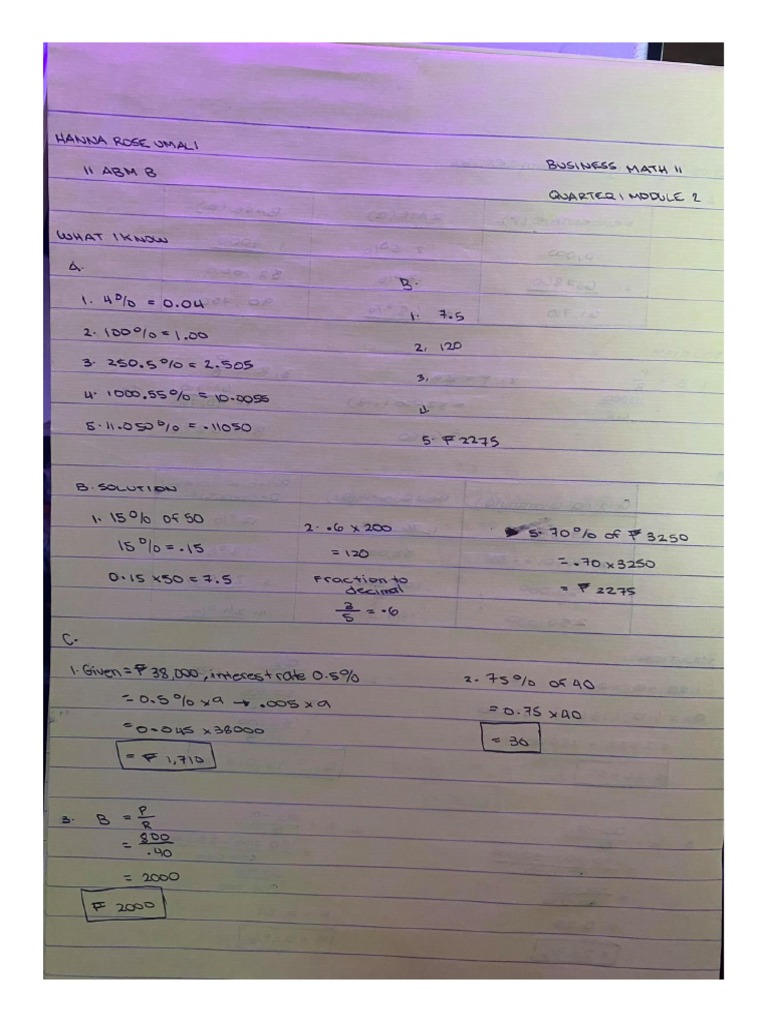 HANNA ROSE UMALI
11 ABM B
BUSINESS MATH 11
QUARTER 1 MODULE 2
WHAT I KNOW
A.
1. 4% = 0.04
2. 100% = 1.00
3. 250.5% = 2.505
4. 1000.55% = 10.0055
5. 11.050% = .11050
B.
1. 7.5
2. 120
3.
4.
5. ₱2275
B. SOLUTION
1. 15% of 50
15% = .15
0.15 x 50 = 7.5
2. .6 x 200
= 120
Fraction to
decimal
3/5 = .6
5. 70% of ₱3250
= .70 x 3250
= ₱2275
C.
1. Given = ₱38,000, interest rate 0.5%
= 0.5% x 9 → .005 x 9
= 0.045 x 38000
= ₱1,710
2. 75% of 40
= 0.75 x 40
= 30
3. B = P/R
= 800/.40
= 2000
₱ 2000